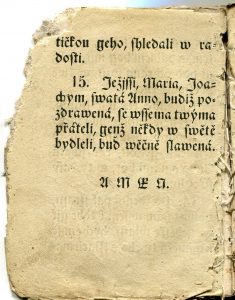 tičkou geho, shledali w ra-
dosti.
15. Ježjssi, Maria, Joa-
chym, swatá Anno, budiž po-
zdrawená, se wssema twýma
přáteli, genž někdy w swětě
bydleli, buď wěčně slawená.
AMEN.